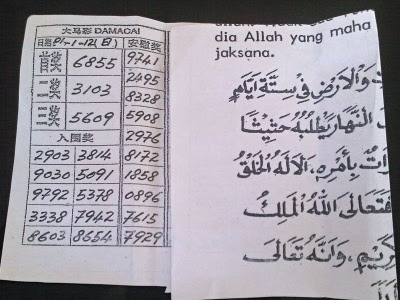 大马彩 DAMACAI
日期 安慰奖
首奖 6855 9741
2495
二奖 3103
8328
三奖 5609 5908
入围奖 2976
2903 3814 8172
9030 5091 1858
9792 5378 0896
3338 7942 7615
8603 8654 7929
dia Allah yang maha
jaksana.
وَالْاَرْضَ فِيْ سِتَّةِ اَيَّامٍ
النَّهَارَ يَطْلُبُهُ حَثِيْثًا
بِأَمْرِهِ، اَلَا لَهُ الْخَلْقُ
فَتَعَالَى اللهُ الْمَلِكُ
وَاَنَّهُ تَعَالَى